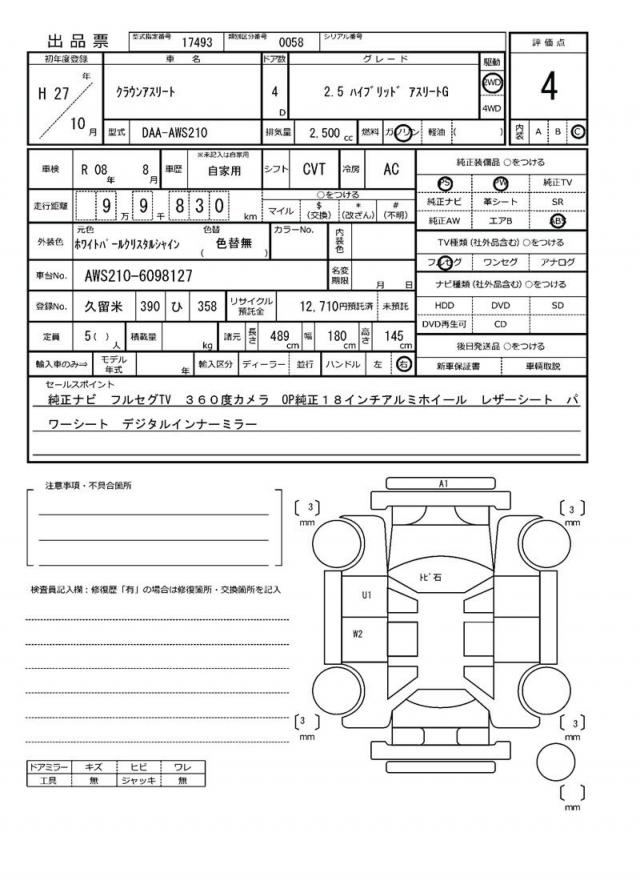 出品票 型式指定番号 17493 類別区分番号 0058 シリアル番号
初年度登録 車名 ドア数 グレード 駆動 評価点
H 27 年 10 月 クラウンアスリート 4 D 2.5 ハイブリッド アスリートG 2WD 4WD 4
型式 DAA-AWS210 排気量 2,500 cc 燃料 ガソリン 軽油 ( ) 内装 A B C
車検 R 08 年 8 月 車歴 ※未記入は自家用 自家用 シフト CVT 冷房 AC
走行距離 9 万 9 千 8 3 0 km ○をつける マイル $ (交換) * (改ざん) # (不明)
外装色 元色 ホワイトパールクリスタルシャイン 色替 ( 色替無 ) カラーNo. 内装色
車台No. AWS210-6098127 名変期限 月 日
登録No. 久留米 390 ひ 358 リサイクル預託金 12,710円預託済 未預託
定員 5( ) 人 積載量 kg 諸元 長さ 489 cm 幅 180 cm 高さ 145 cm
輸入車のみ⇒ モデル年式 年 輸入区分 ディーラー 並行 ハンドル 左 右
純正装備品 ○をつける
PS PW 純正TV
純正ナビ 革シート SR
純正AW エアB ABS
TV種類(社外品含む) ○をつける
フルセグ ワンセグ アナログ
ナビ種類(社外品含む) ○をつける
HDD DVD SD
DVD再生可 CD
後日発送品 ○をつける
新車保証書 車輌取説
セールスポイント
純正ナビ フルセグTV 360度カメラ OP純正18インチアルミホイール レザーシート パ
ワーシート デジタルインナーミラー
注意事項・不具合箇所
検査員記入欄:修復歴「有」の場合は修復箇所・交換箇所を記入
A1
( 3 ) mm ( 3 ) mm
トビ石
U1
W2
( 3 ) mm ( 3 ) mm
( ) mm
ドアミラー キズ ヒビ ワレ
工具 無 ジャッキ 無